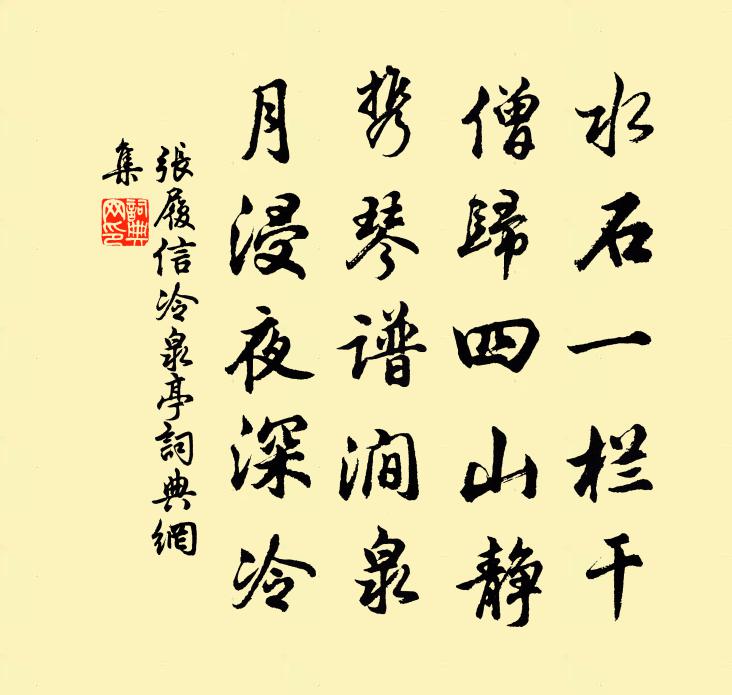 水石一栏干
僧歸四山静
携琴谱涧泉
月浸夜深冷
張履信冷泉亭詞典網
集
詞典
网印